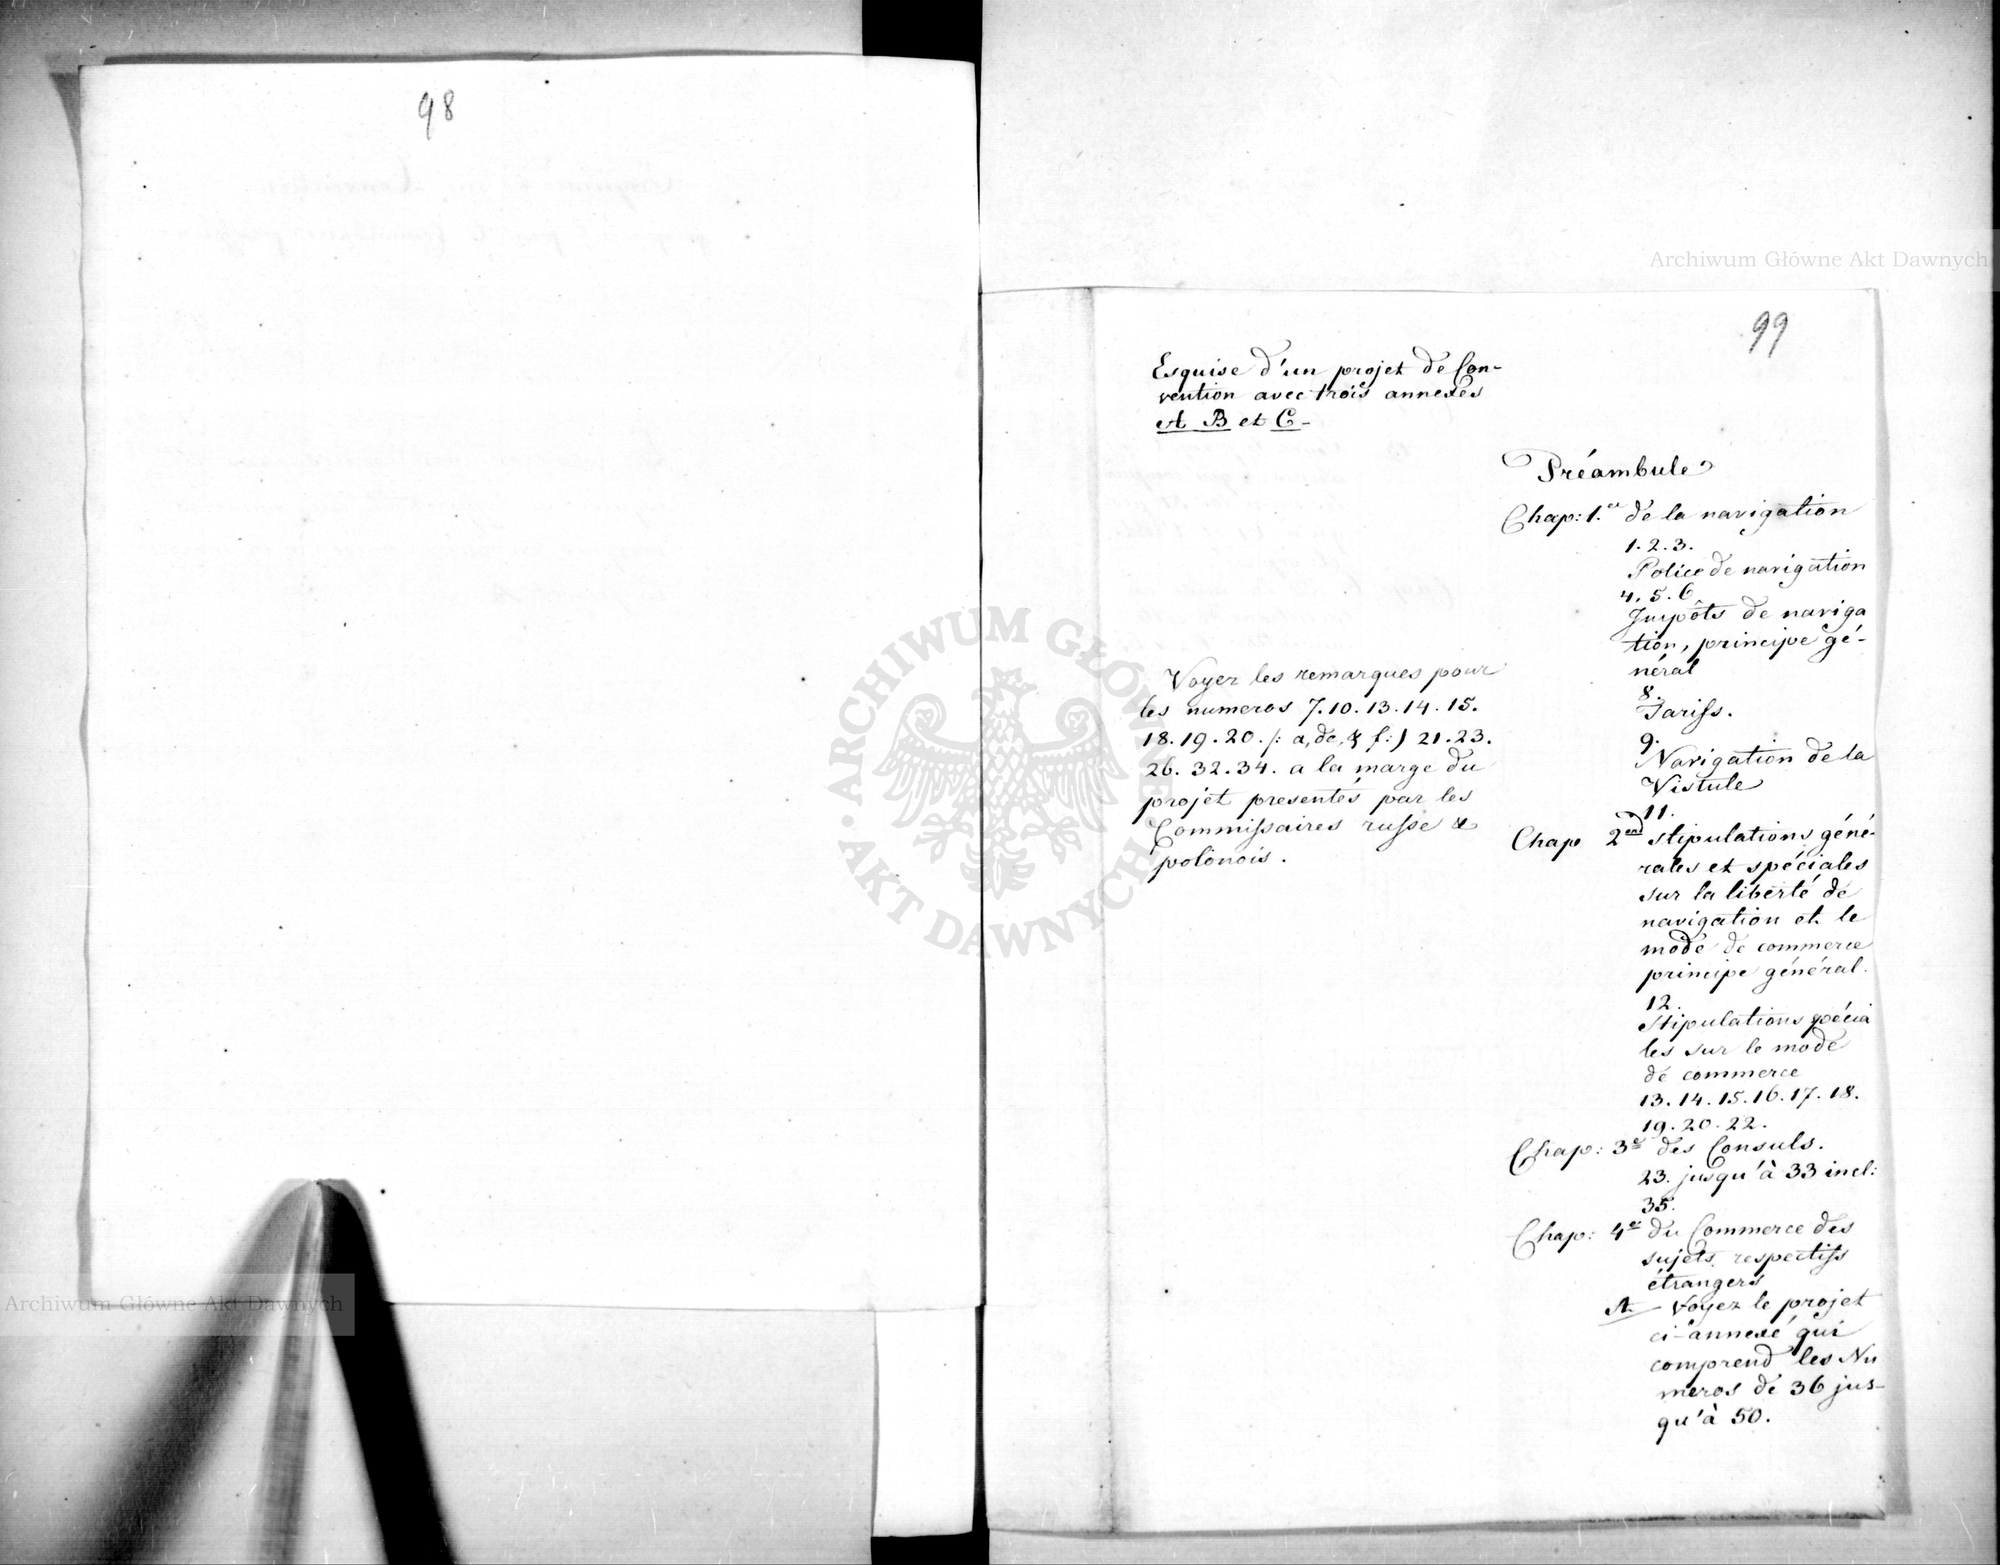 98
99
Esquise d'un projet de Con-
vention avec trois annexes
A B et C-
Voyez les remarques pour
les numeros 7.10.13.14.15.
18.19.20./: a, de, & f:) 21.23.
26.32.34. a la marge du
projet presentés par les
Commissaires russe &
polonois.
Préambule
Chap: 1.er de la navigation
1.2.3.
Police de navigation
4.5.6
Impôts de naviga
tion, principe gé-
néral
8.
Tariffs.
9.
Navigation de la
Vistule
11.
Chap 2end Stipulations géné-
rales et spéciales
sur la liberté de
navigation et le
mode de commerce
principe général.
12.
Stipulations spécia
les sur le mode
de commerce
13.14.15.16.17.18.
19.20.22.
Chap: 3e des Consuls.
23. jusqu'à 33 incl:
35.
Chap: 4e du Commerce des
sujets respectifs
étrangers
A- Voyez le projet
ci-annexé qui
comprend les Nu
meros de 36 jus-
qu'à 50.
Archiwum Główne Akt Dawnych
Archiwum Główne Akt Dawnych
ARCHIWUM GŁÓWNE
AKT DAWNYCH